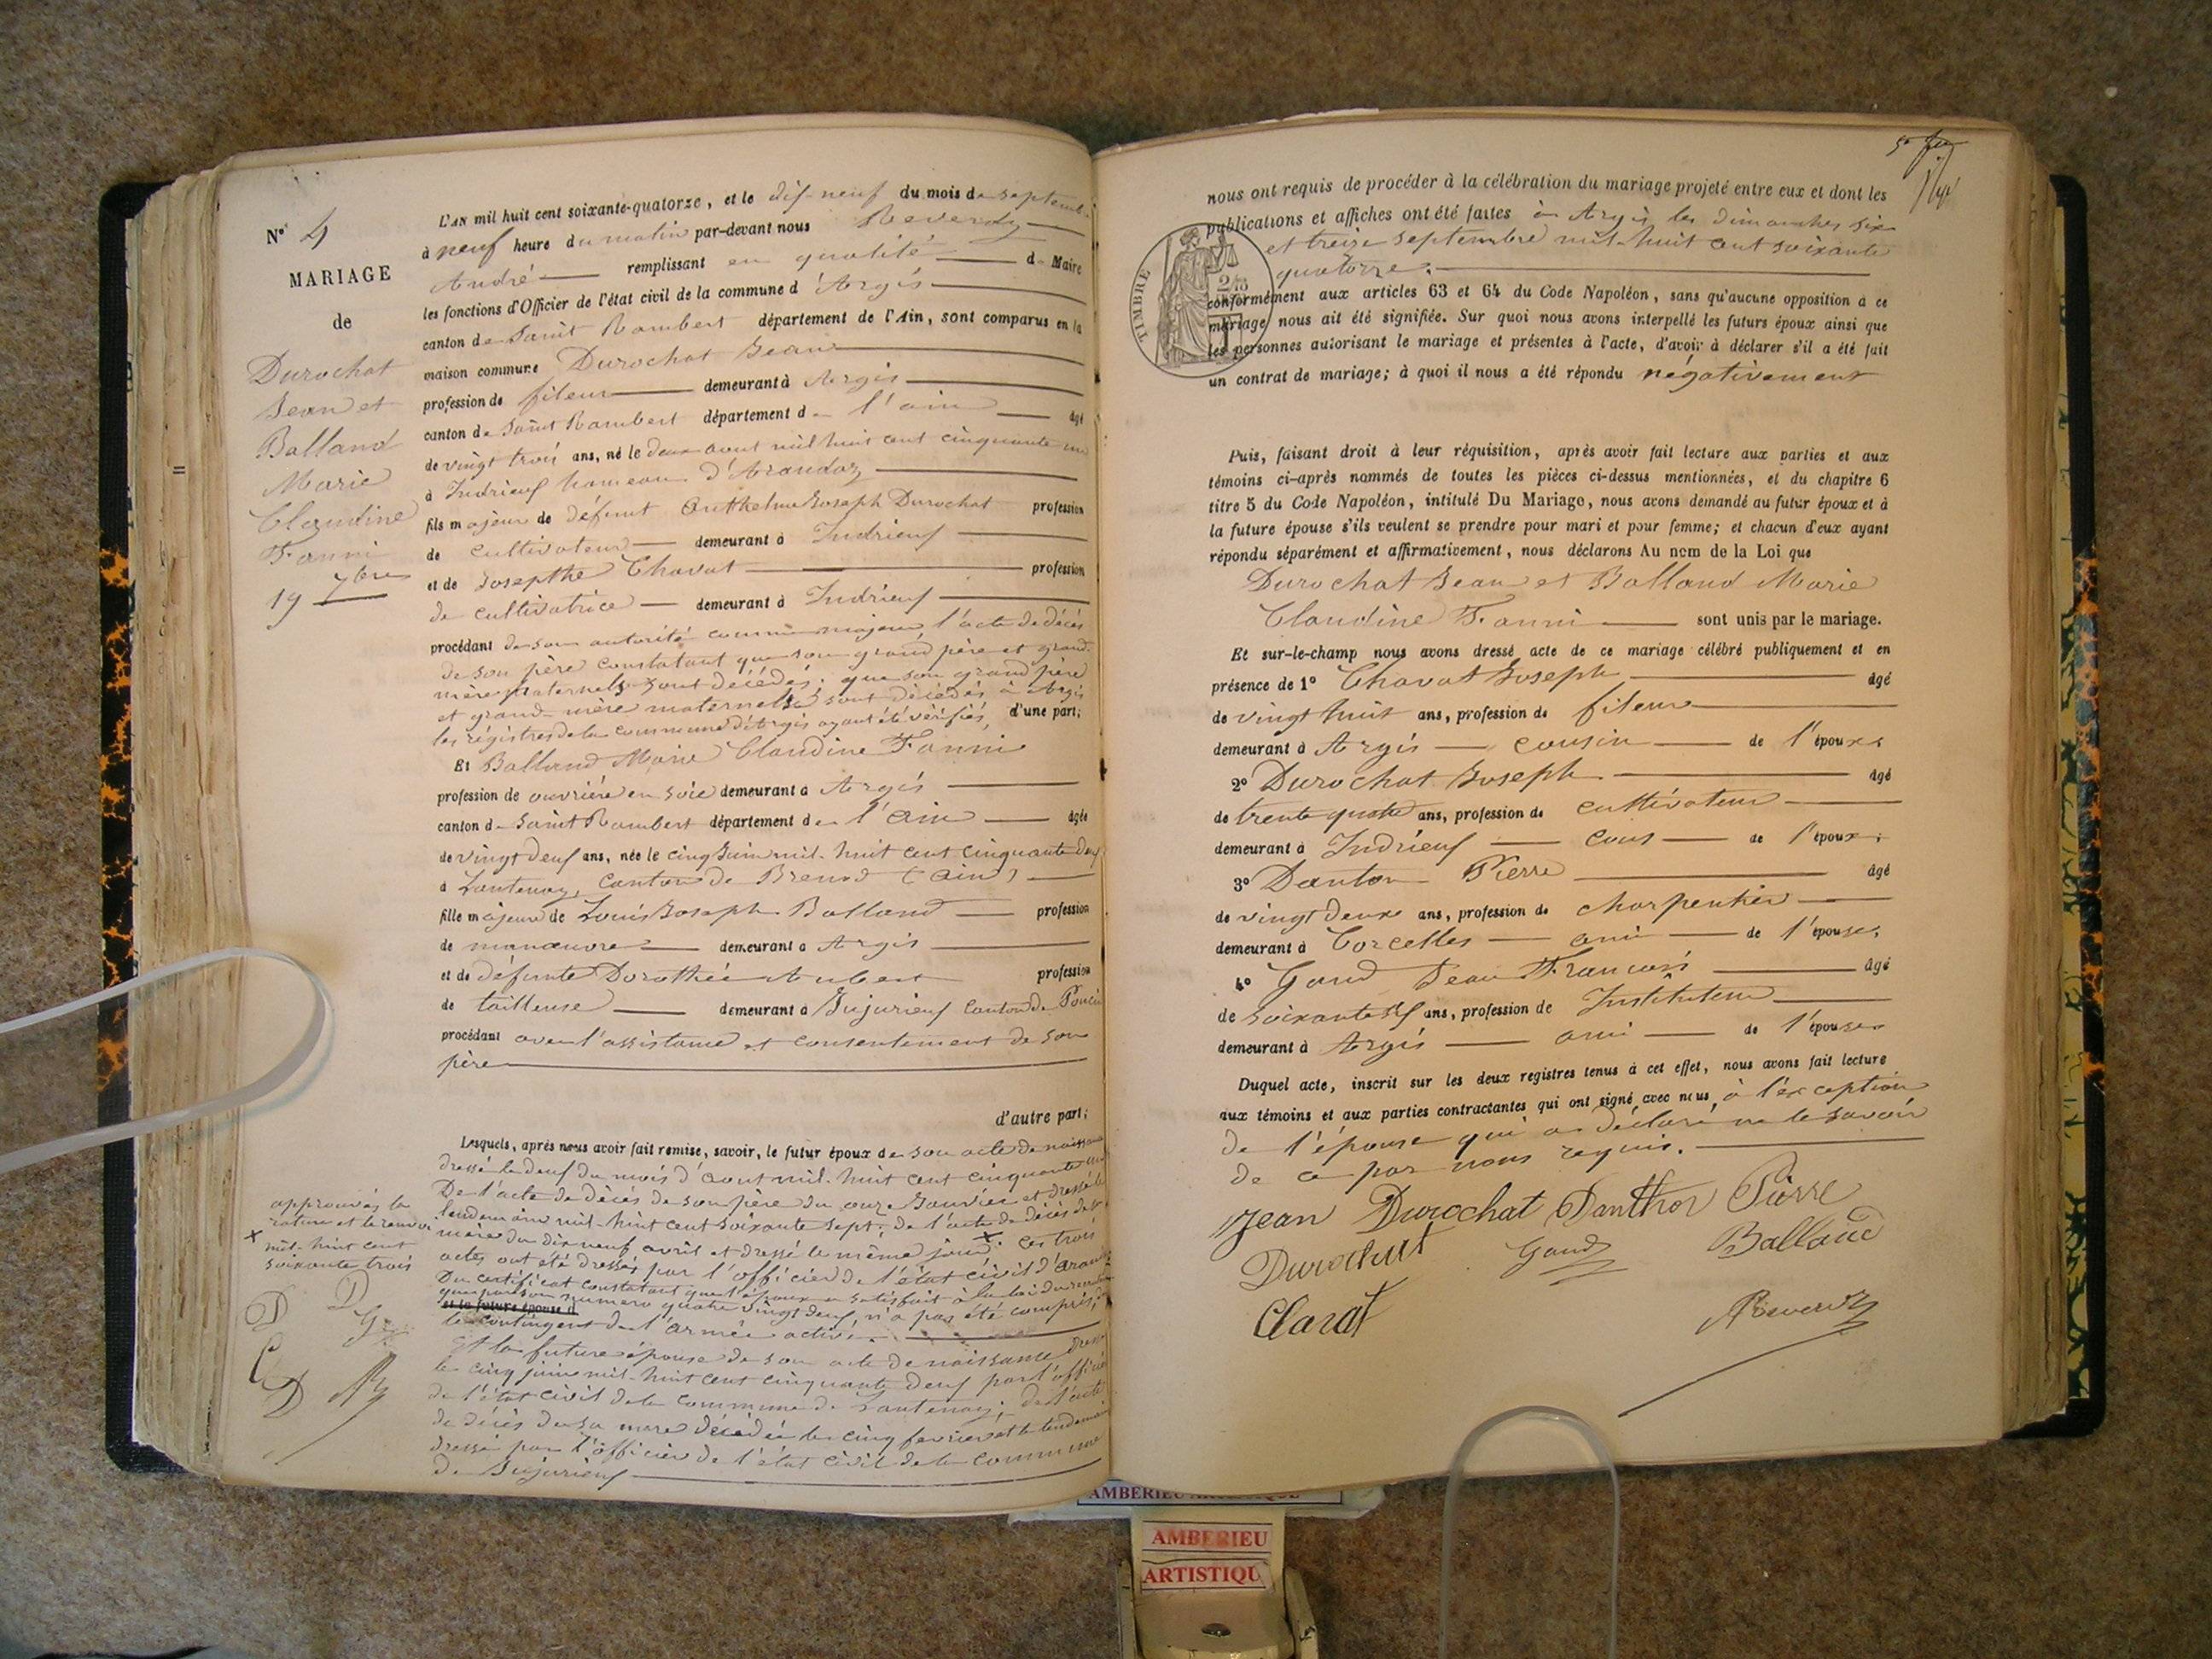 N° 4
MARIAGE
de
Durochat
Jean et
Balland
Marie
Claudine
Fanni
19 7bre
L'AN mil huit cent soixante-quatorze, et le dix-neuf du mois de septembre
à neuf heure du matin par-devant nous Reverdy
André remplissant en qualité de Maire
les fonctions d'Officier de l'état civil de la commune d'Argis
canton de Saint Rambert département de l'Ain, sont comparus en la
maison commune Durochat Jean
profession de fileur demeurant à Argis
canton de Saint Rambert département de l'ain âgé
de vingt trois ans, né le deux aout mil huit cent cinquante un
à Indrieux hameau d'Arandaz
fils majeur de défunt Anthelme Joseph Durochat profession
de cultivateur demeurant à Indrieux
et de Josepthe Chavat profession
de cultivatrice demeurant à Indrieux
procédant de son autorité comme majeur, l'acte de décès
de son père constatant que son grand père et grand
mère paternels sont décédés; que son grand père
et grand-mère maternels sont décédés à Argis
les régistres de la commune d'Argis ayant été vérifiés, d'une part;
Et Balland Marie Claudine Fanni
profession de ouvrière en soie demeurant à Argis
canton de Saint Rambert département de l'Ain âgée
de vingt deux ans, née le cinq Juin mil-huit cent cinquante deux
à Lantenay, canton de Brenod (Ain)
fille majeure de Louis Joseph Balland profession
de manœuvre demeurant à Argis
et de défunte Dorothée Aubert profession
de tailleuse demeurant à Jujurieux canton de Poncin
procédant avec l'assistance et consentement de son
père
d'autre part;
Lesquels, après nous avoir fait remise, savoir, le futur époux de son acte de naissance
dressé le deux du mois d'aout mil-huit cent cinquante un
De l'acte de décès de son père du onze Janvier et dressé le
lendemain mil-huit cent soixante sept; de l'acte de décès de sa
mère du dix neuf avril et dressé le même jour x. Ces trois
actes ont été dressés par l'officier de l'état civil d'Arandaz
Du certificat constatant que l'époux a satisfait à la loi du recrutement
que par son numero quatre vingt deux, n'a pas été compris dans
et la future épouse d
le contingent de l'armée active.
Et la future épouse de son acte de naissance dressé
le cinq juin mil-huit cent cinquante deux par l'officier
de l'état civil de la commune de Lantenay; de l'acte
de décès de sa mere décédée le cinq fevrier et le lendemain
dressé par l'officier de l'état civil de la commune
de Jujurieux
approuvés la
rature et le renvoi
x mil-huit cent
soixante trois
D D
G
C
D Ry
nous ont requis de procéder à la célébration du mariage projeté entre eux et dont les
publications et affiches ont été faites à Argis les dimanches six
et treize septembre mil-huit cent soixante
quatorze.
TIMBRE
conformément aux articles 63 et 64 du Code Napoléon, sans qu'aucune opposition à ce
mariage nous ait été signifiée. Sur quoi nous avons interpellé les futurs époux ainsi que
les personnes autorisant le mariage et présentes à l'acte, d'avoir à déclarer s'il a été fait
un contrat de mariage; à quoi il nous a été répondu négativement
Puis, faisant droit à leur réquisition, après avoir fait lecture aux parties et aux
témoins ci-après nommés de toutes les pièces ci-dessus mentionnées, et du chapitre 6
titre 5 du Code Napoléon, intitulé Du Mariage, nous avons demandé au futur époux et à
la future épouse s'ils veulent se prendre pour mari et pour femme; et chacun d'eux ayant
répondu séparément et affirmativement, nous déclarons Au nom de la Loi que
Durochat Jean et Balland Marie
Claudine Fanni sont unis par le mariage.
Et sur-le-champ nous avons dressé acte de ce mariage célébré publiquement et en
présence de 1° Chavat Joseph âgé
de vingt huit ans, profession de fileur
demeurant à Argis cousin de l'époux.
2° Durochat Joseph âgé
de trente quatre ans, profession de cultivateur
demeurant à Indrieux cous de l'époux.
3° Danton Pierre âgé
de vingt deux ans, profession de charpentier
demeurant à Corcelles ami de l'épouse,
4° Gand Jean François âgé
de soixante six ans, profession de Instituteur
demeurant à Argis ami de l'épouse
Duquel acte, inscrit sur les deux registres tenus à cet effet, nous avons fait lecture
aux témoins et aux parties contractantes qui ont signé avec nous, à l'exception
de l'épouse qui a déclaré ne le savoir
de ce par nous requis.
Jean Durochat Danthon Pierre
Durochat Gand Balland
Clavat Reverdy
AMBERIEU ARTISTIQUE
AMBERIEU
ARTISTIQU